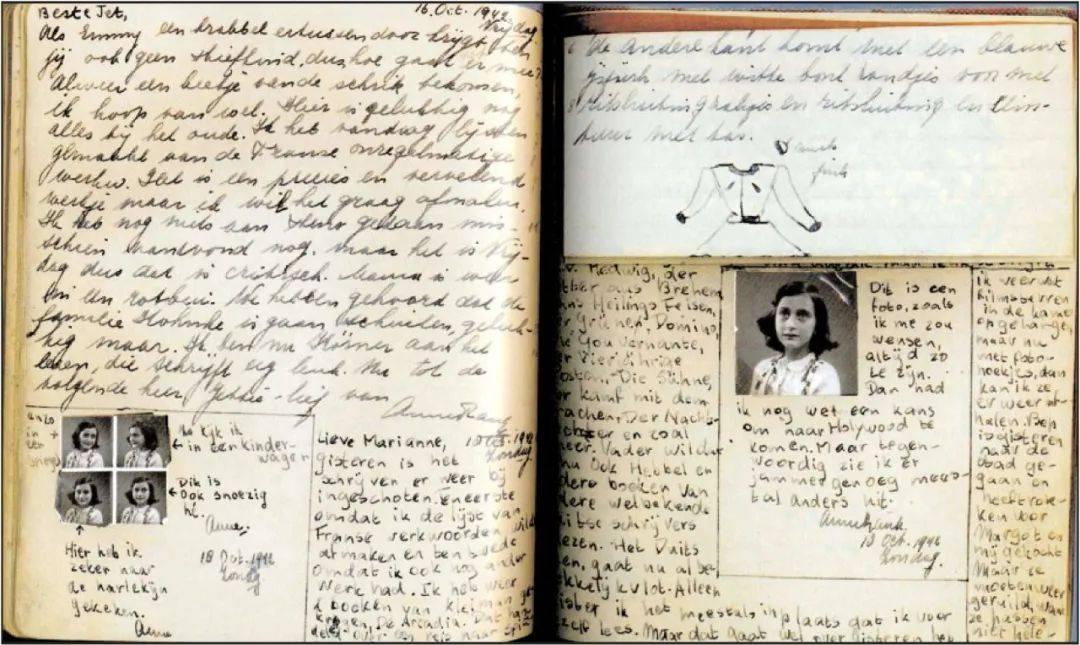 Beste Jet,
16. Oct. 1942
Vrijdag
Als Emmy een krabbel ertussendoor krijgt, ben
jij ook geen stiefkind, dus hoe gaat er mee?
Alweer een beetje van de schrik bekomen,
ik hoop van wel. Hier is gelukkig nog
alles bij het oude. Ik heb vandaag lijsten
gemaakt van de Franse onregelmatige
werkw. Het is een precies en vervelend
werkje maar ik wil het graag afmaken.
Ik heb nog niets aan steno gedaan mis-
schien vanavond nog, maar het is Vrij-
dag dus dat is critisch. Mama is weer
We hebben gehoord dat de
familie is gaan schuilen, geluk-
kig maar. Ik ben nu Körner aan het
lezen, die schrijft erg leuk. Nu tot de
volgende keer Jettie-lief van
Anne Frank
in
een
Nu kijk ik
in een kinder-
wagen
Dit is
ook snoezig
hè.
Anne.
18 Oct. 1942
Zondag
Hier heb ik
zeker naar
de harlekijn
gekeken.
Anne
Lieve Marianne,
18 Oct. 1942
Zondag
gisteren is het
schrijven er weer bij
ingeschoten, eneerste
omdat ik de lijst van
Franse werkwoorden wilde
afmaken en ten tweede
omdat ik ook nog ander
werk had. Ik heb weer
2 boeken van kleiman ge-
kregen, De Arcadia. Dat
over een reis naar
De andere kant komt met een blauwe
met witte bont randjes voor met
ritssluiting en
met tas.
Hedwig, der
aus Brehem
Hans Heilings Felsen,
Der Grüne, Domino,
die Gouvernante,
der Vierjährige
Posten, Die Sühne,
der kampf mit dem
Drachen, Der Nacht-
wächter en zoal
meer. Vader wil dat
ik nu ook Hebbel en
andere boeken van
andere welbekende
Duitse schrijvers
lezen. Het Duits
lezen, gaat nu al be-
trekkelijk vlot. Alleen
fluister ik het meestal inplaats dat ik voor
mezelf lees. Maar dat gaat wel over. Gisteren
Dit is een
foto, zoals
ik me zou
wensen,
altijd zo
te zijn.
Dan had
ik nog wel een kans
om naar Holywood te
komen. Maar tegen-
woordig zie ik er
jammer genoeg mees-
tal anders uit.
Annefrank.
18 Oct. 1942
Zondag.
ik weer wat
filmsterren
in de kamer
opgehangen,
maar nu
met foto-
hoekjes, dan
kan ik ze
er weer af-
halen. Bep
is gisteren
naar de
stad ge-
gaan en
heeft rok-
ken voor
Margot en
mij gekocht
Maar ze
moeten weer
geruild, want
ze passen
niet hele-